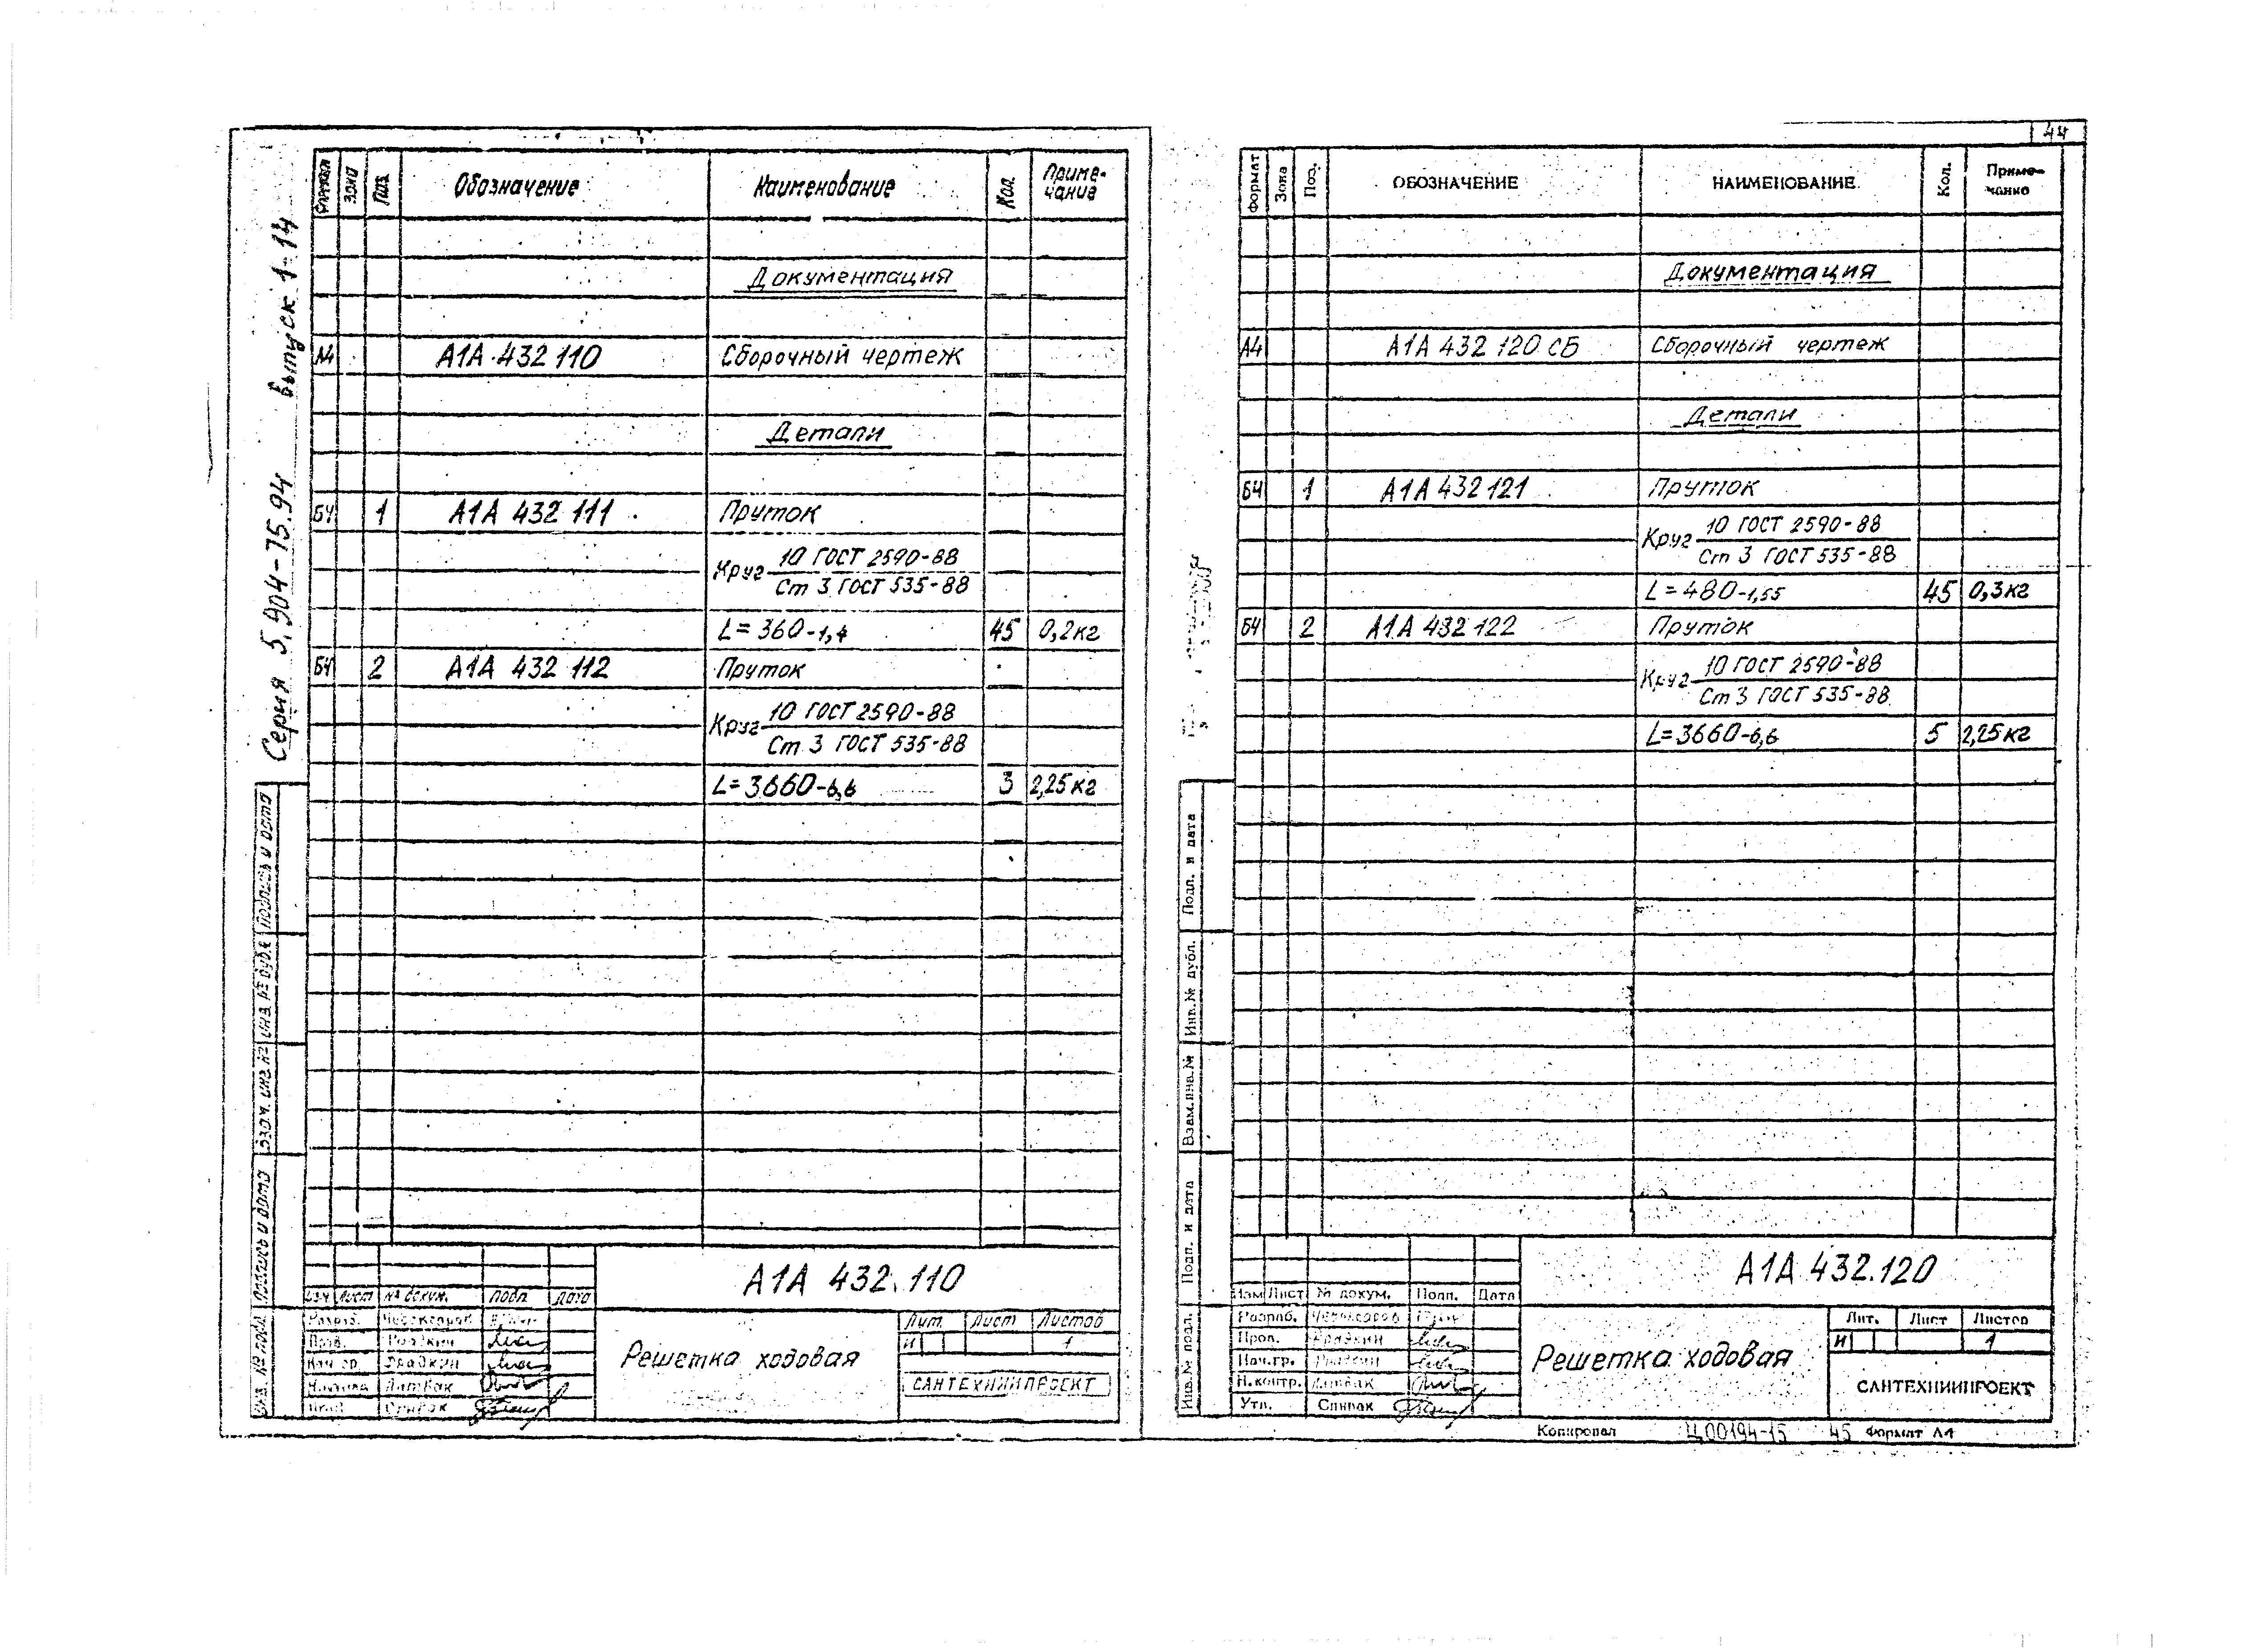 44
Серия 5.904-75.94 Выпуск 1-14
Формат Зона Поз. Обозначение Наименование Кол. Приме-
чание
Документация
А4 А1А 432 110 Сборочный чертеж
Детали
БЧ 1 А1А 432 111 Пруток
Круг 10 ГОСТ 2590-88
Ст 3 ГОСТ 535-88
L= 360-1,4 45 0,2кг
БЧ 2 А1А 432 112 Пруток
Круг 10 ГОСТ 2590-88
Ст 3 ГОСТ 535-88
L= 3660-6,6 3 2,25кг
Подпись и дата
Инв № дубл
Взам. инв №
Подпись и дата
Инв. № подл.
А1А 432.110
Изм Лист № докум. Подп. Дата
Разраб.
Пров. Гладкин
Нач гр. Гладкин
Спивак
Решетка ходовая
Лит. Лист Листов
И 1
САНТЕХНИИПРОЕКТ
Формат Зона Поз. ОБОЗНАЧЕНИЕ НАИМЕНОВАНИЕ Кол. Приме-
чание
Документация
А4 А1А 432 120 СБ Сборочный чертеж
Детали
БЧ 1 А1А 432 121 Пруток
Круг 10 ГОСТ 2590-88
Ст 3 ГОСТ 535-88
L= 480-1,55 45 0,3кг
БЧ 2 А1А 432 122 Пруток
Круг 10 ГОСТ 2590-88
Ст 3 ГОСТ 535-88
L= 3660-6,6 5 2,25кг
Подп. и дата
Инв. № дубл.
Взам.инв.№
Подп. и дата
Инв.№ подл.
А1А 432.120
Изм Лист № докум. Подп. Дата
Разраб.
Пров. Гладкин
Нач.гр. Гладкин
Н.контр.
Утв. Спивак
Решетка ходовая
Лит. Лист Листов
И 1
САНТЕХНИИПРОЕКТ
Копировал Ц00194-15 45 Формат А4